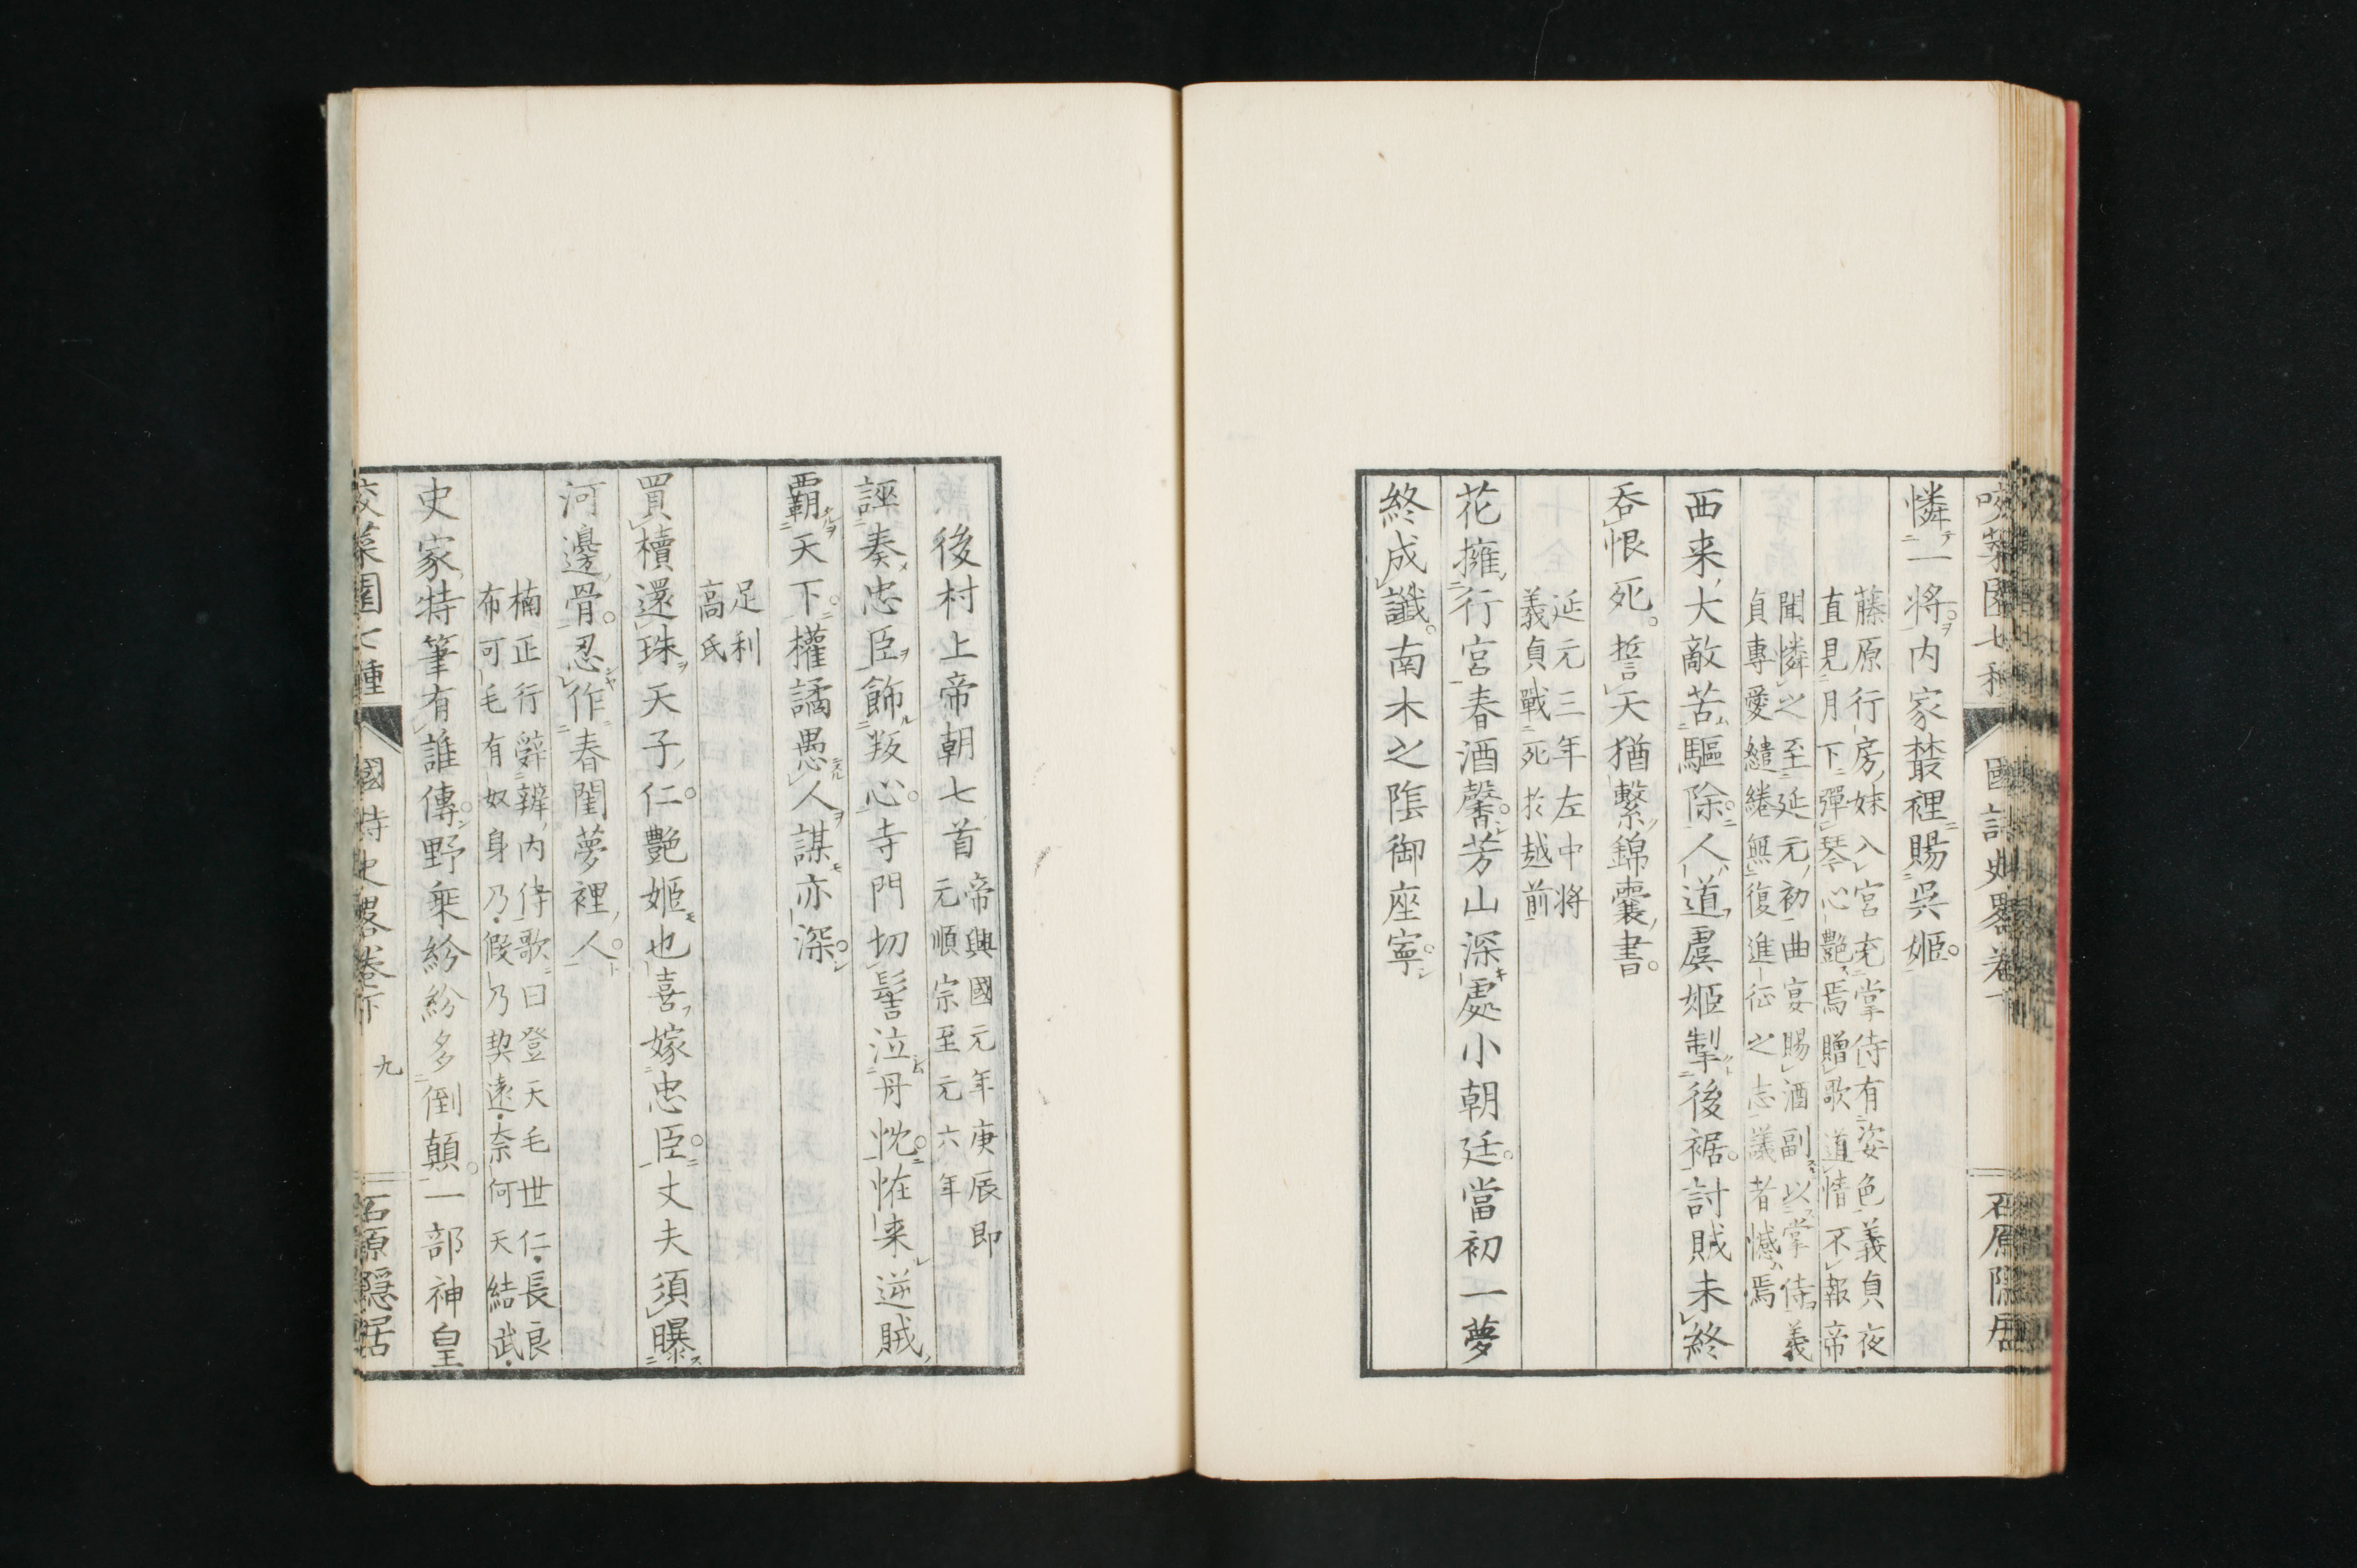 憐一將。内家叢裡賜呉姫。
藤原行房妹入宮充掌侍有姿色義貞夜
直見月下彈琴心艶焉贈歌道情不報帝
聞憐之至延元初曲宴賜酒副以掌侍義
貞專愛繾綣無復進征之志議者憾焉
西来大敵苦驅除。人道虞姫掣後裾。討賊未終
呑恨死。誓天猶繋錦囊書。
延元三年左中将
義貞戰死於越前
花擁行宮春酒馨。芳山深處小朝廷。當初一夢
終成讖。南木之陰御座寧。
後村上帝朝七首
帝興國元年庚辰即
元順宗至元六年
誣奏忠臣飾叛心。寺門切髻泣丹忱。恠来逆賊
覇天下。權譎愚人謀亦深。
足利
高氏
買櫝還珠天子仁。艶姫也喜嫁忠臣。丈夫須曝
河邊骨。忍作春閨夢裡人。
楠正行辭辨内侍歌曰登天毛世仁・長良
布可毛有奴身乃・假乃契遠・奈何天結武・
史家特筆有誰傳。野乗紛紛多倒顛。一部神皇
九
石原隱居